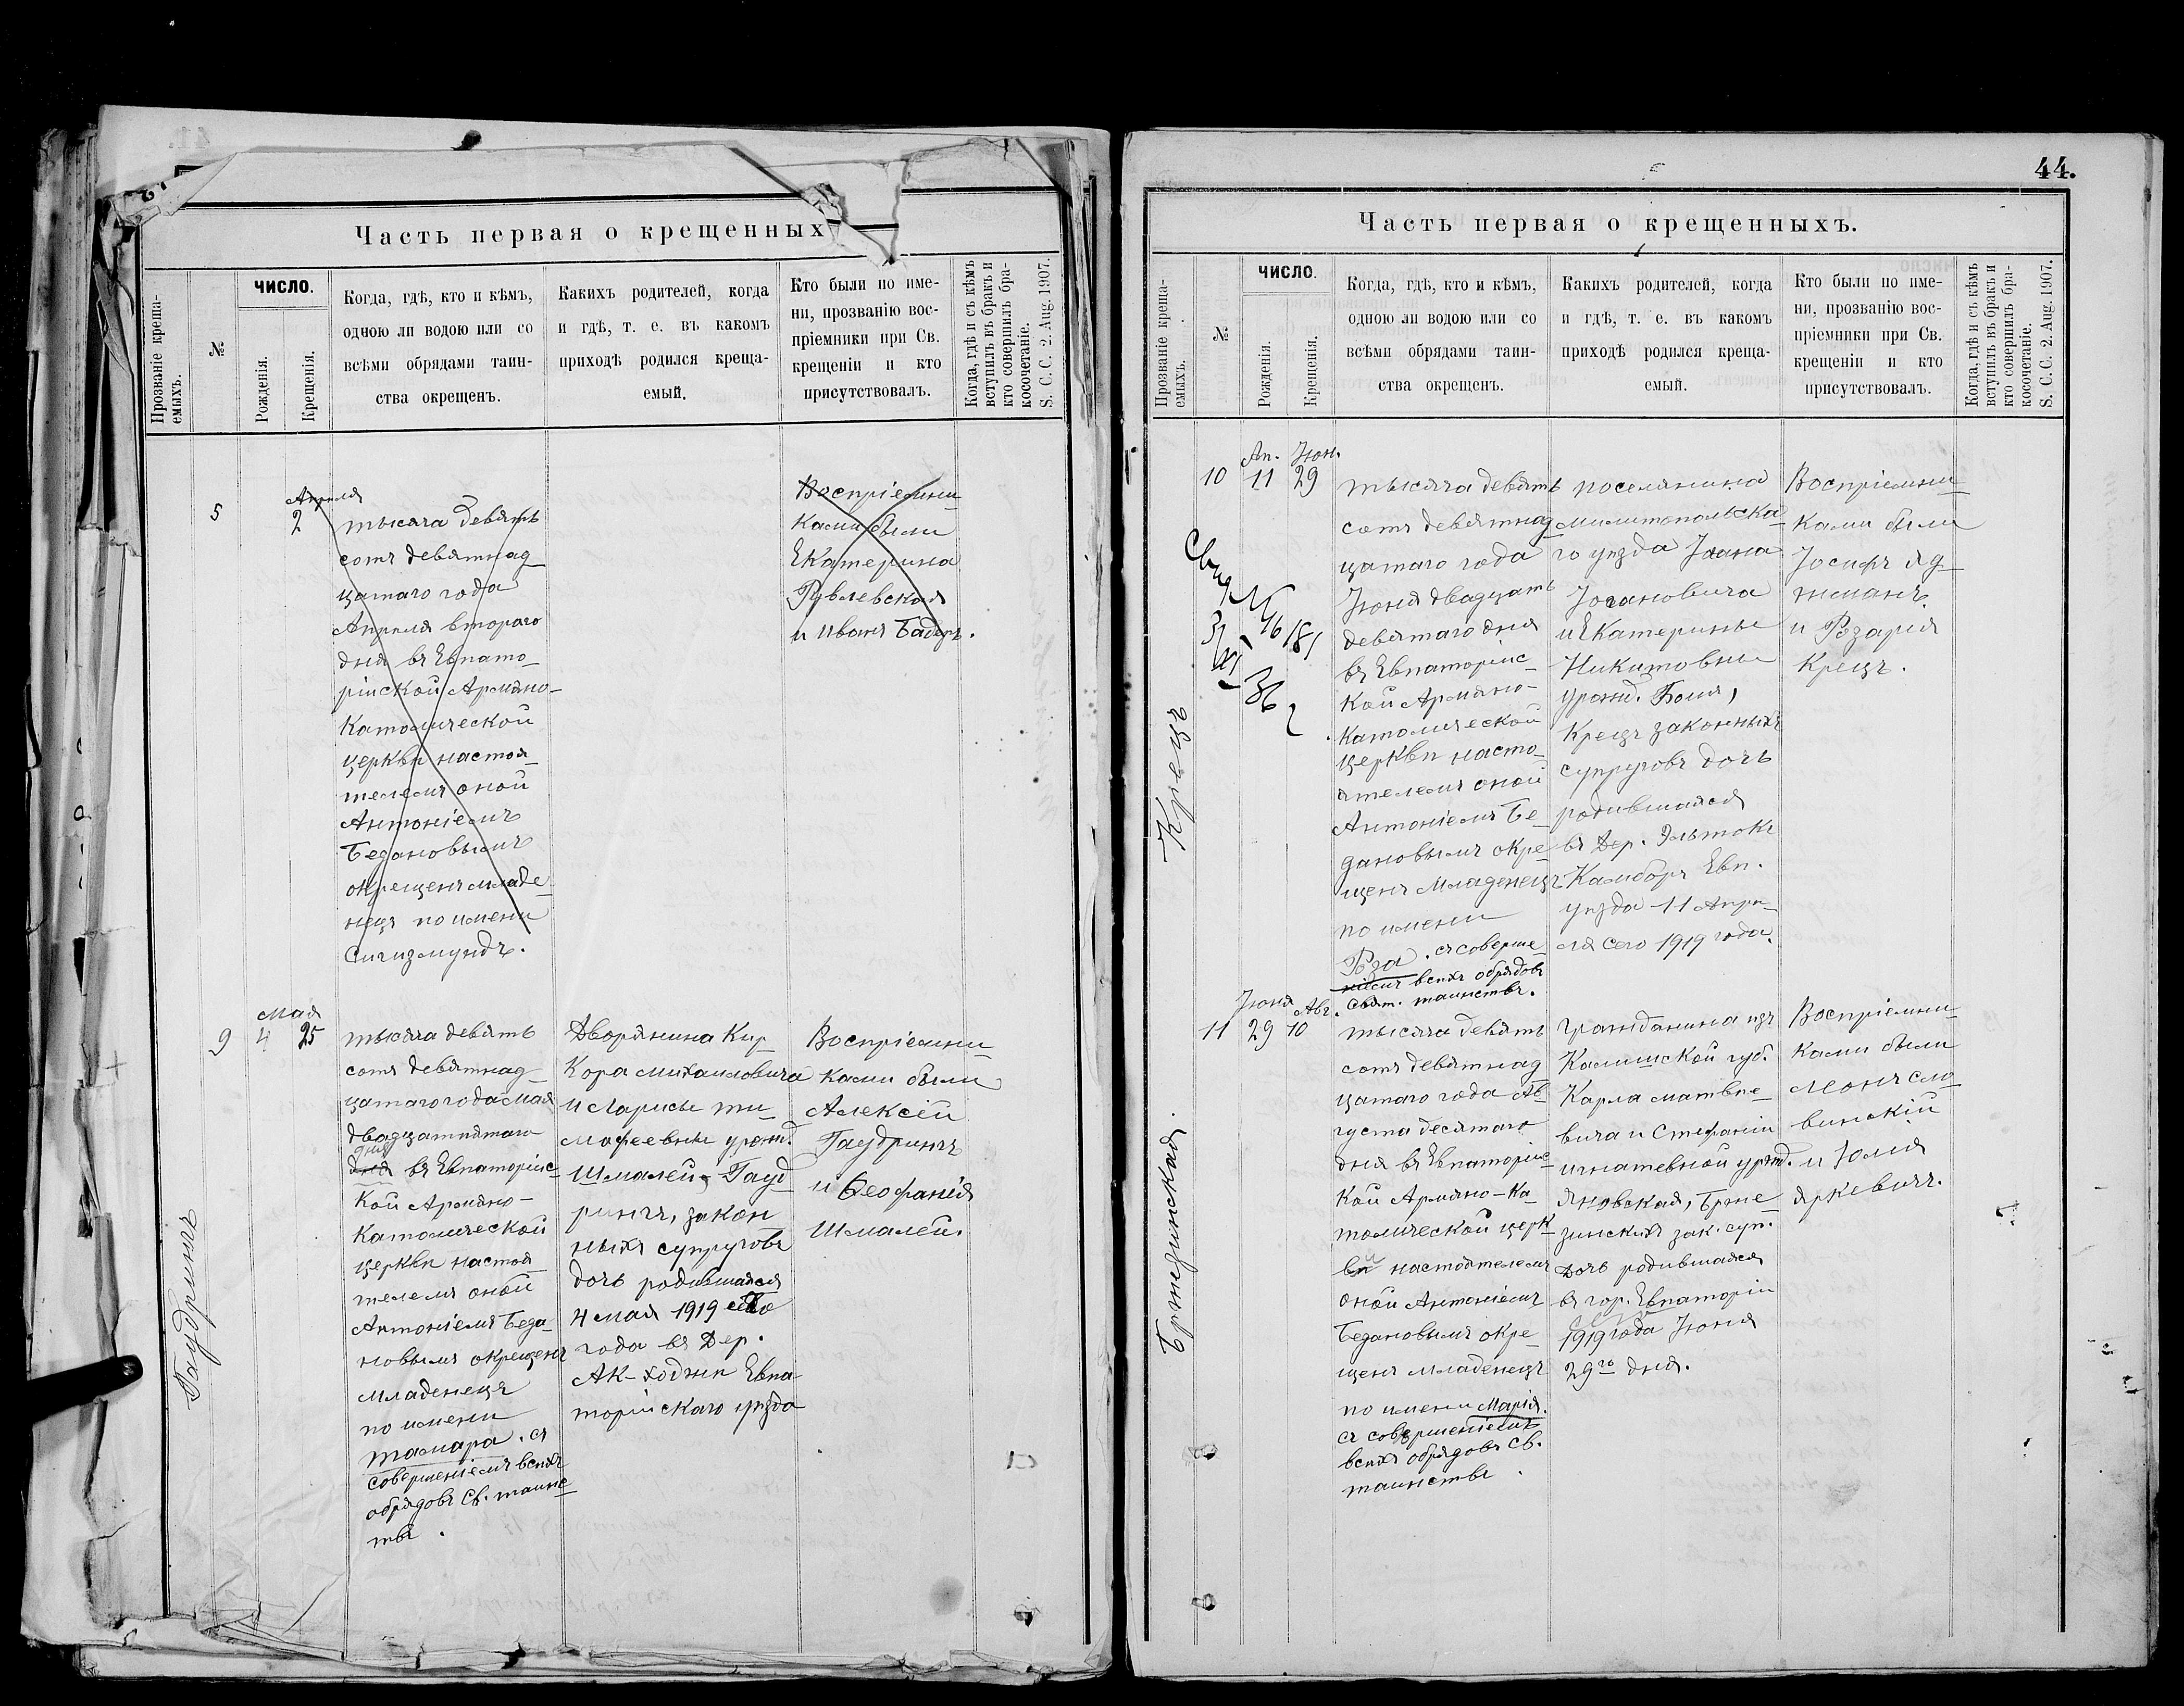 Часть первая о крещенных
Прозваніе креща-
емыхъ.
№
ЧИСЛО.
Рожденія.
Крещенія.
Когда, гдѣ, кто и кѣмъ,
одною ли водою или со
всѣми обрядами таин-
ства окрещенъ.
Какихъ родителей, когда
и гдѣ, т. е. въ какомъ
приходѣ родился креща-
емый.
Кто были по име-
ни, прозванію вос-
пріемники при Св.
крещеніи и кто
присутствовалъ.
Когда, гдѣ и съ кѣмъ
вступилъ въ бракъ и
кто совершилъ бра-
косочетаніе.
S. C. C. 2. Aug. 1907.
5
Апрѣля
2
тысяча девять
сотъ девятнад
цатаго года
Апрѣля второго
дня въ Евпато-
рійской Армяно-
Католической
церкви настоя
телемъ оной
Антоніемъ
Бедановымъ
окрещенъ младе
нецъ по имени
Сигизмундъ.
Воспріемни
ками были
Екатерина
Рублевская
и Иванъ Бадеръ.
Гаудрингъ
9
Мая
4 25
тысяча девять
сотъ девятнад
цатаго года Мая
двадцатпятаго
дня
дня въ Евпаторійс
кой Армяно-
Католической
церкви настоя
телемъ оной
Антоніемъ Беда-
новымъ окрещенъ
младенецъ
по имени
Тамара. съ
совершеніемъ всѣхъ
обрядовъ Св. таинс
твъ.
Дворянина Кир
Кора Михаиловича
и Ларисы Ти
мофеевны урожд.
Шмалей, Гауд
рингъ, закон
ныхъ супруговъ
дочь родившаяся
4 мая 1919 сего
года въ Дер.
Ак-Ходжи Евпа-
торійскаго уѣзда
Воспріемни
ками были
Алексій
Гаудрингъ
и Ѳеофанія
Шмалей.
44.
Часть первая о крещенныхъ.
Прозваніе креща-
емыхъ.
№
ЧИСЛО.
Рожденія.
Крещенія.
Когда, гдѣ, кто и кѣмъ,
одною ли водою или со
всѣми обрядами таин-
ства окрещенъ.
Какихъ родителей, когда
и гдѣ, т. е. въ какомъ
приходѣ родился креща-
емый.
Кто были по име-
ни, прозванію вос-
пріемники при Св.
крещеніи и кто
присутствовалъ.
Когда, гдѣ и съ кѣмъ
вступилъ въ бракъ и
кто совершилъ бра-
косочетаніе.
S. C. C. 2. Aug. 1907.
Крецъ
10
Ап. Іюн.
11 29
тысяча девять
сотъ девятнад
цатаго года
Іюня двадцать
девятаго дня
въ Евпаторійс
кой Армяно-
Католической
церкви насто
ятелемъ оной
Антоніемъ Бе
дановымъ окре
щенъ младенецъ
по имени
Роза. съ соверше
ніемъ всѣхъ обрядовъ
Свят. таинствъ.
поселянина
Милитопольска
го уѣзда Іоана
Іогановича
и Екатерины
Никитовны
урожд. Бомъ,
Крецъ законныхъ
супруговъ дочь
родившаяся
въ Дер. Эльтокъ
Камборъ Евп.
уѣзда 11 Апрѣ
ля сего 1919 года.
Воспріемни
ками были
Іосифъ Яд
гжманъ
и Розарія
Крецъ.
Бржезинская.
11
Іюня Авг.
29 10
тысяча девять
сотъ девятнад
цатаго года Ав
густа десятаго
дня въ Евпаторійс
кой Армяно-Ка
толической церк
ви настоятелемъ
оной Антоніемъ
Бедановымъ окре
щенъ младенецъ
по имени Марія.
съ совершеніемъ
всѣхъ обрядовъ Св.
таинствъ.
гражданина изъ
Калишской губ.
Карла Матвѣе
вича и Стефаніи
Игнатевной урожд.
Яновская, Брже
зинскихъ зак. суп.
Дочь родившаяся
въ гор. Евпаторіи
1919 года Іюня
29го дня.
Воспріемни
ками были
Леонъ Сло
винскій
и Юлія
Яркевичъ.